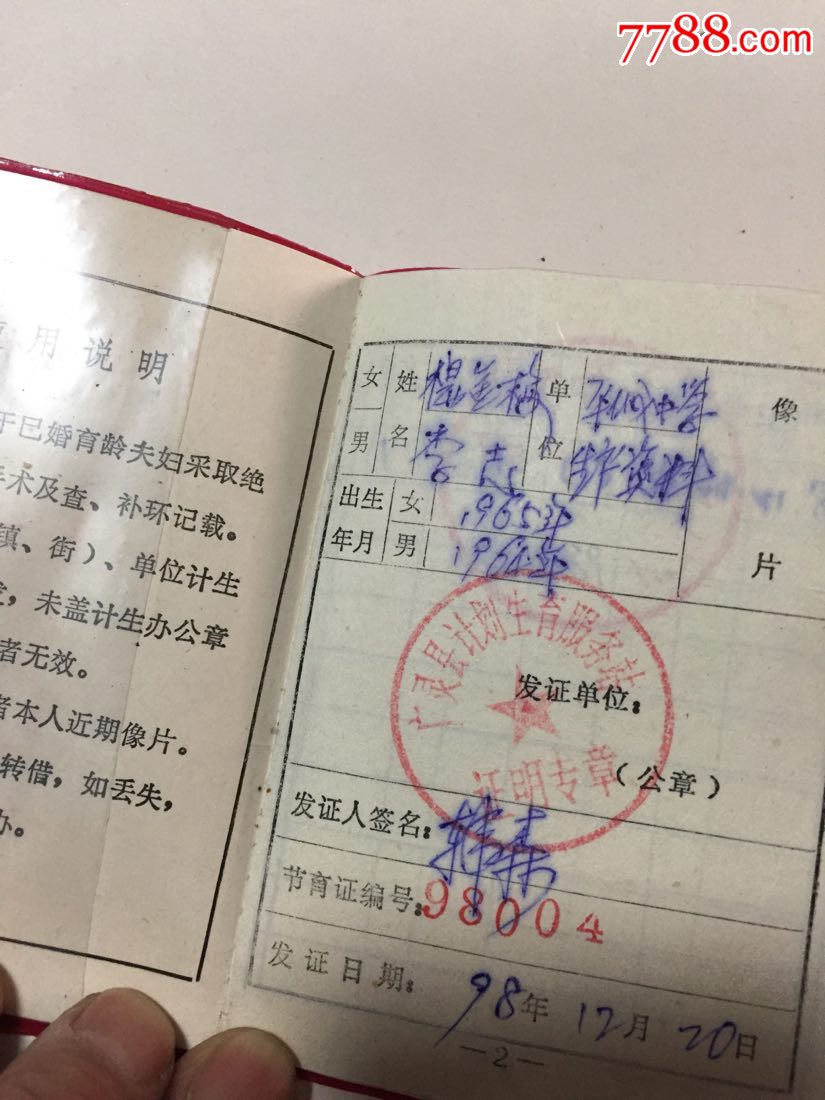 7788.com
用说明
于已婚育龄夫妇采取绝
术及查、补环记载。
镇、街)、单位计生
，未盖计生办公章
者无效。
者本人近期像片。
转借，如丢失，
办。
女 姓 梅 单 中学 像
男 名 李志 位 资料
出生 女 1965年
年月 男 1964年 片
广灵县计划生育服务站
发证单位：
证明专章
(公章)
发证人签名：韩
节育证编号：98004
发证日期：98年12月20日
—2—